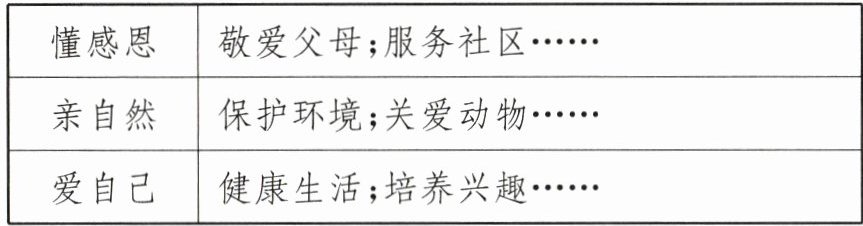 懂感恩 敬爱父母;服务社区……
亲自然 保护环境;关爱动物……
爱自己 健康生活;培养兴趣……